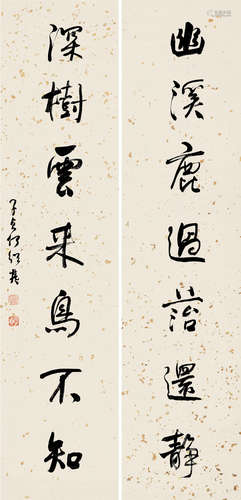 幽溪鹿過苔還静
深樹雲来鳥不知
子貞何紹基